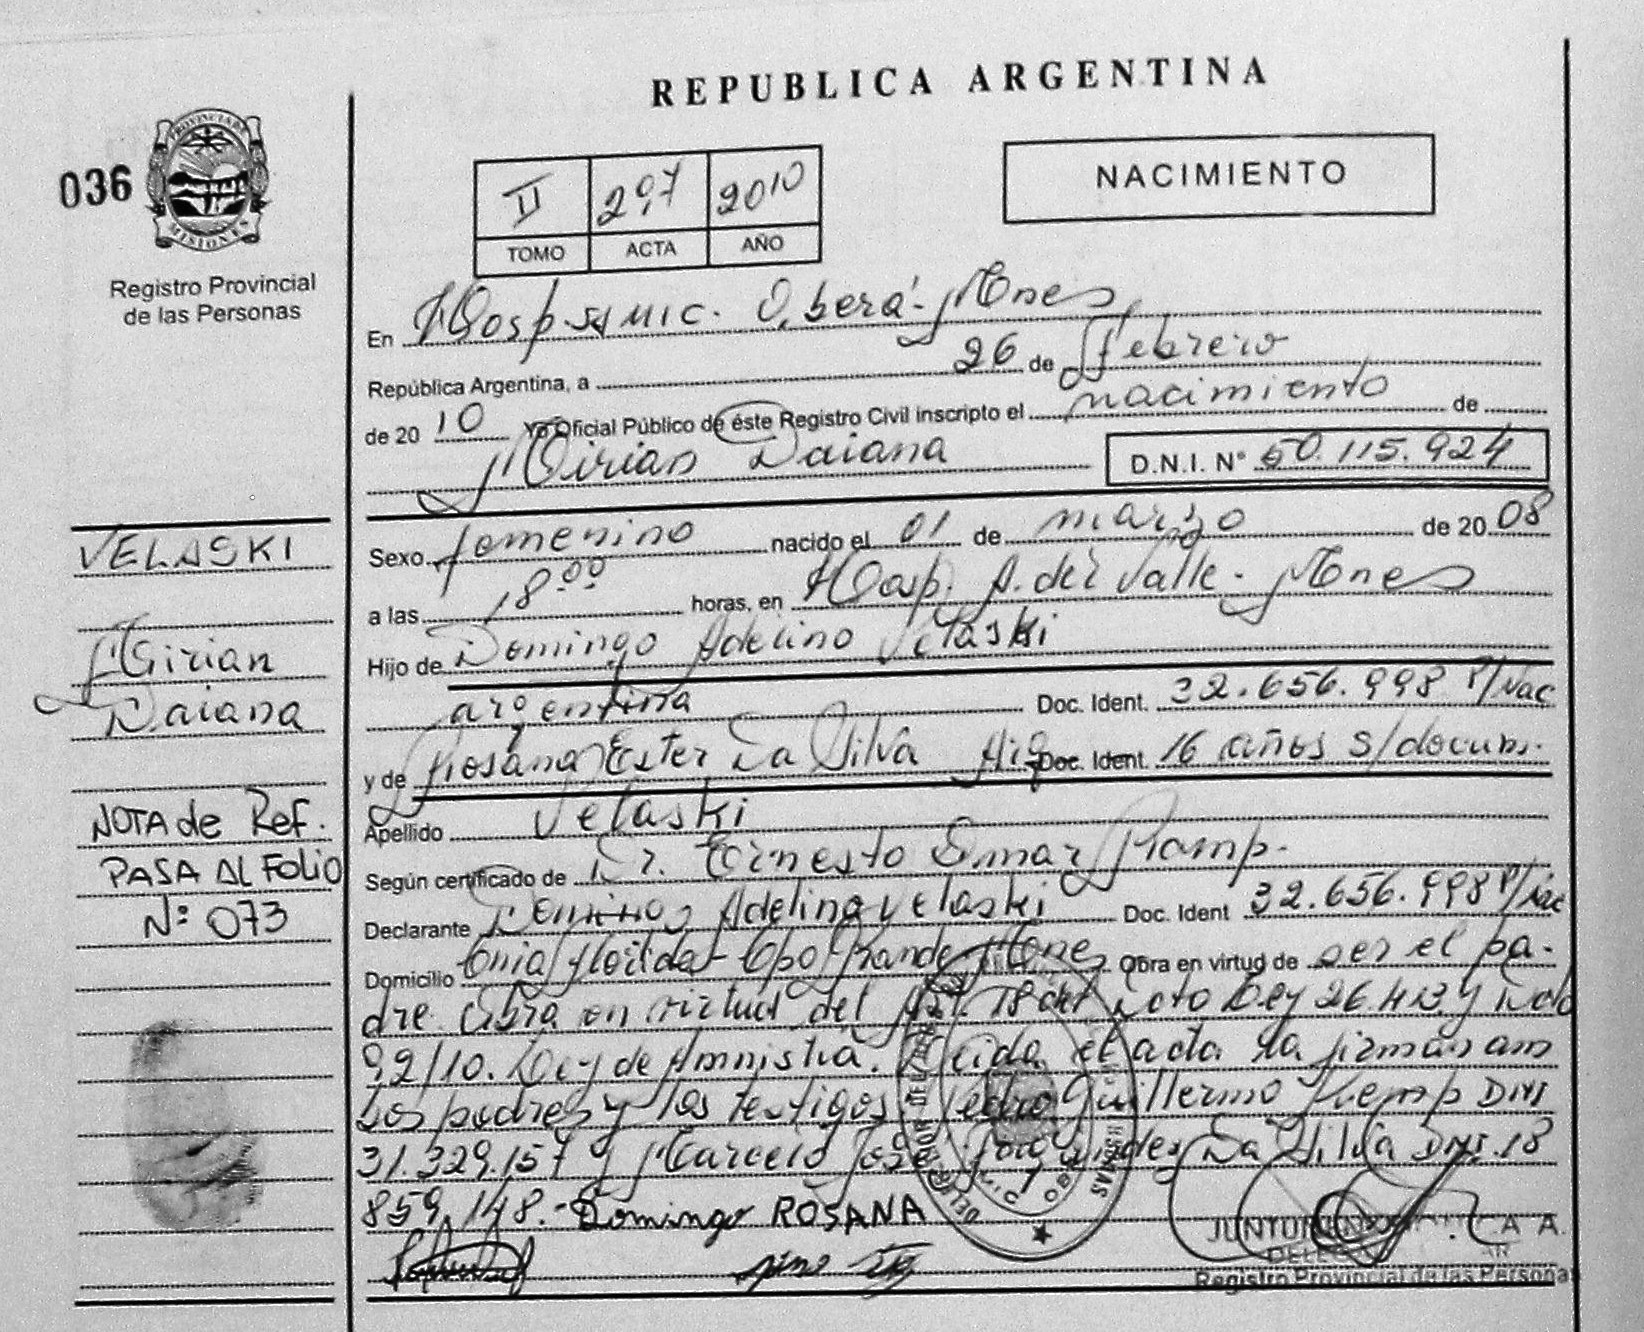 REPUBLICA ARGENTINA
036
PROVINCIA DE
MISIONES
Registro Provincial
de las Personas
II 297 2010
TOMO ACTA AÑO
NACIMIENTO
En Hosp. SAMIC. Oberá - Mones,
República Argentina, a 26 de febrero
de 2010 Yo Oficial Público de éste Registro Civil inscripto el nacimiento de
Mirian Daiana D.N.I. N° 50.115.924
Sexo femenino nacido el 01 de marzo de 2008
a las 18 00 horas, en Hosp. A. del Valle - Mones
Hijo de Domingo Adelino Velaski
argentina Doc. Ident. 32.656.998 P/Nac
y de Rosana Ester Da Silva Doc. Ident. 16 años s/docum.
Apellido Velaski
Según certificado de Dr. Ernesto Omar
Declarante Domingo Adelino Velaski Doc. Ident 32.656.998 P/Nac
Domicilio Grande Mones Obra en virtud de ser el pa-
dre Obra en virtud del Art. 18 del Dcto Ley 26.413 y Dcto
92/10. Ley de Amnistía. Leída el acta la firman am
bos padres y los testigos Pedro Guillermo Kemp DNI
31.329.157 y Marcelo José Da Silva DNI. 18
859.148.- Domingo ROSANA
VELASKI
Mirian
Daiana
NOTA de Ref.
PASA AL FOLIO
N: 073
Registro Provincial de las Personas